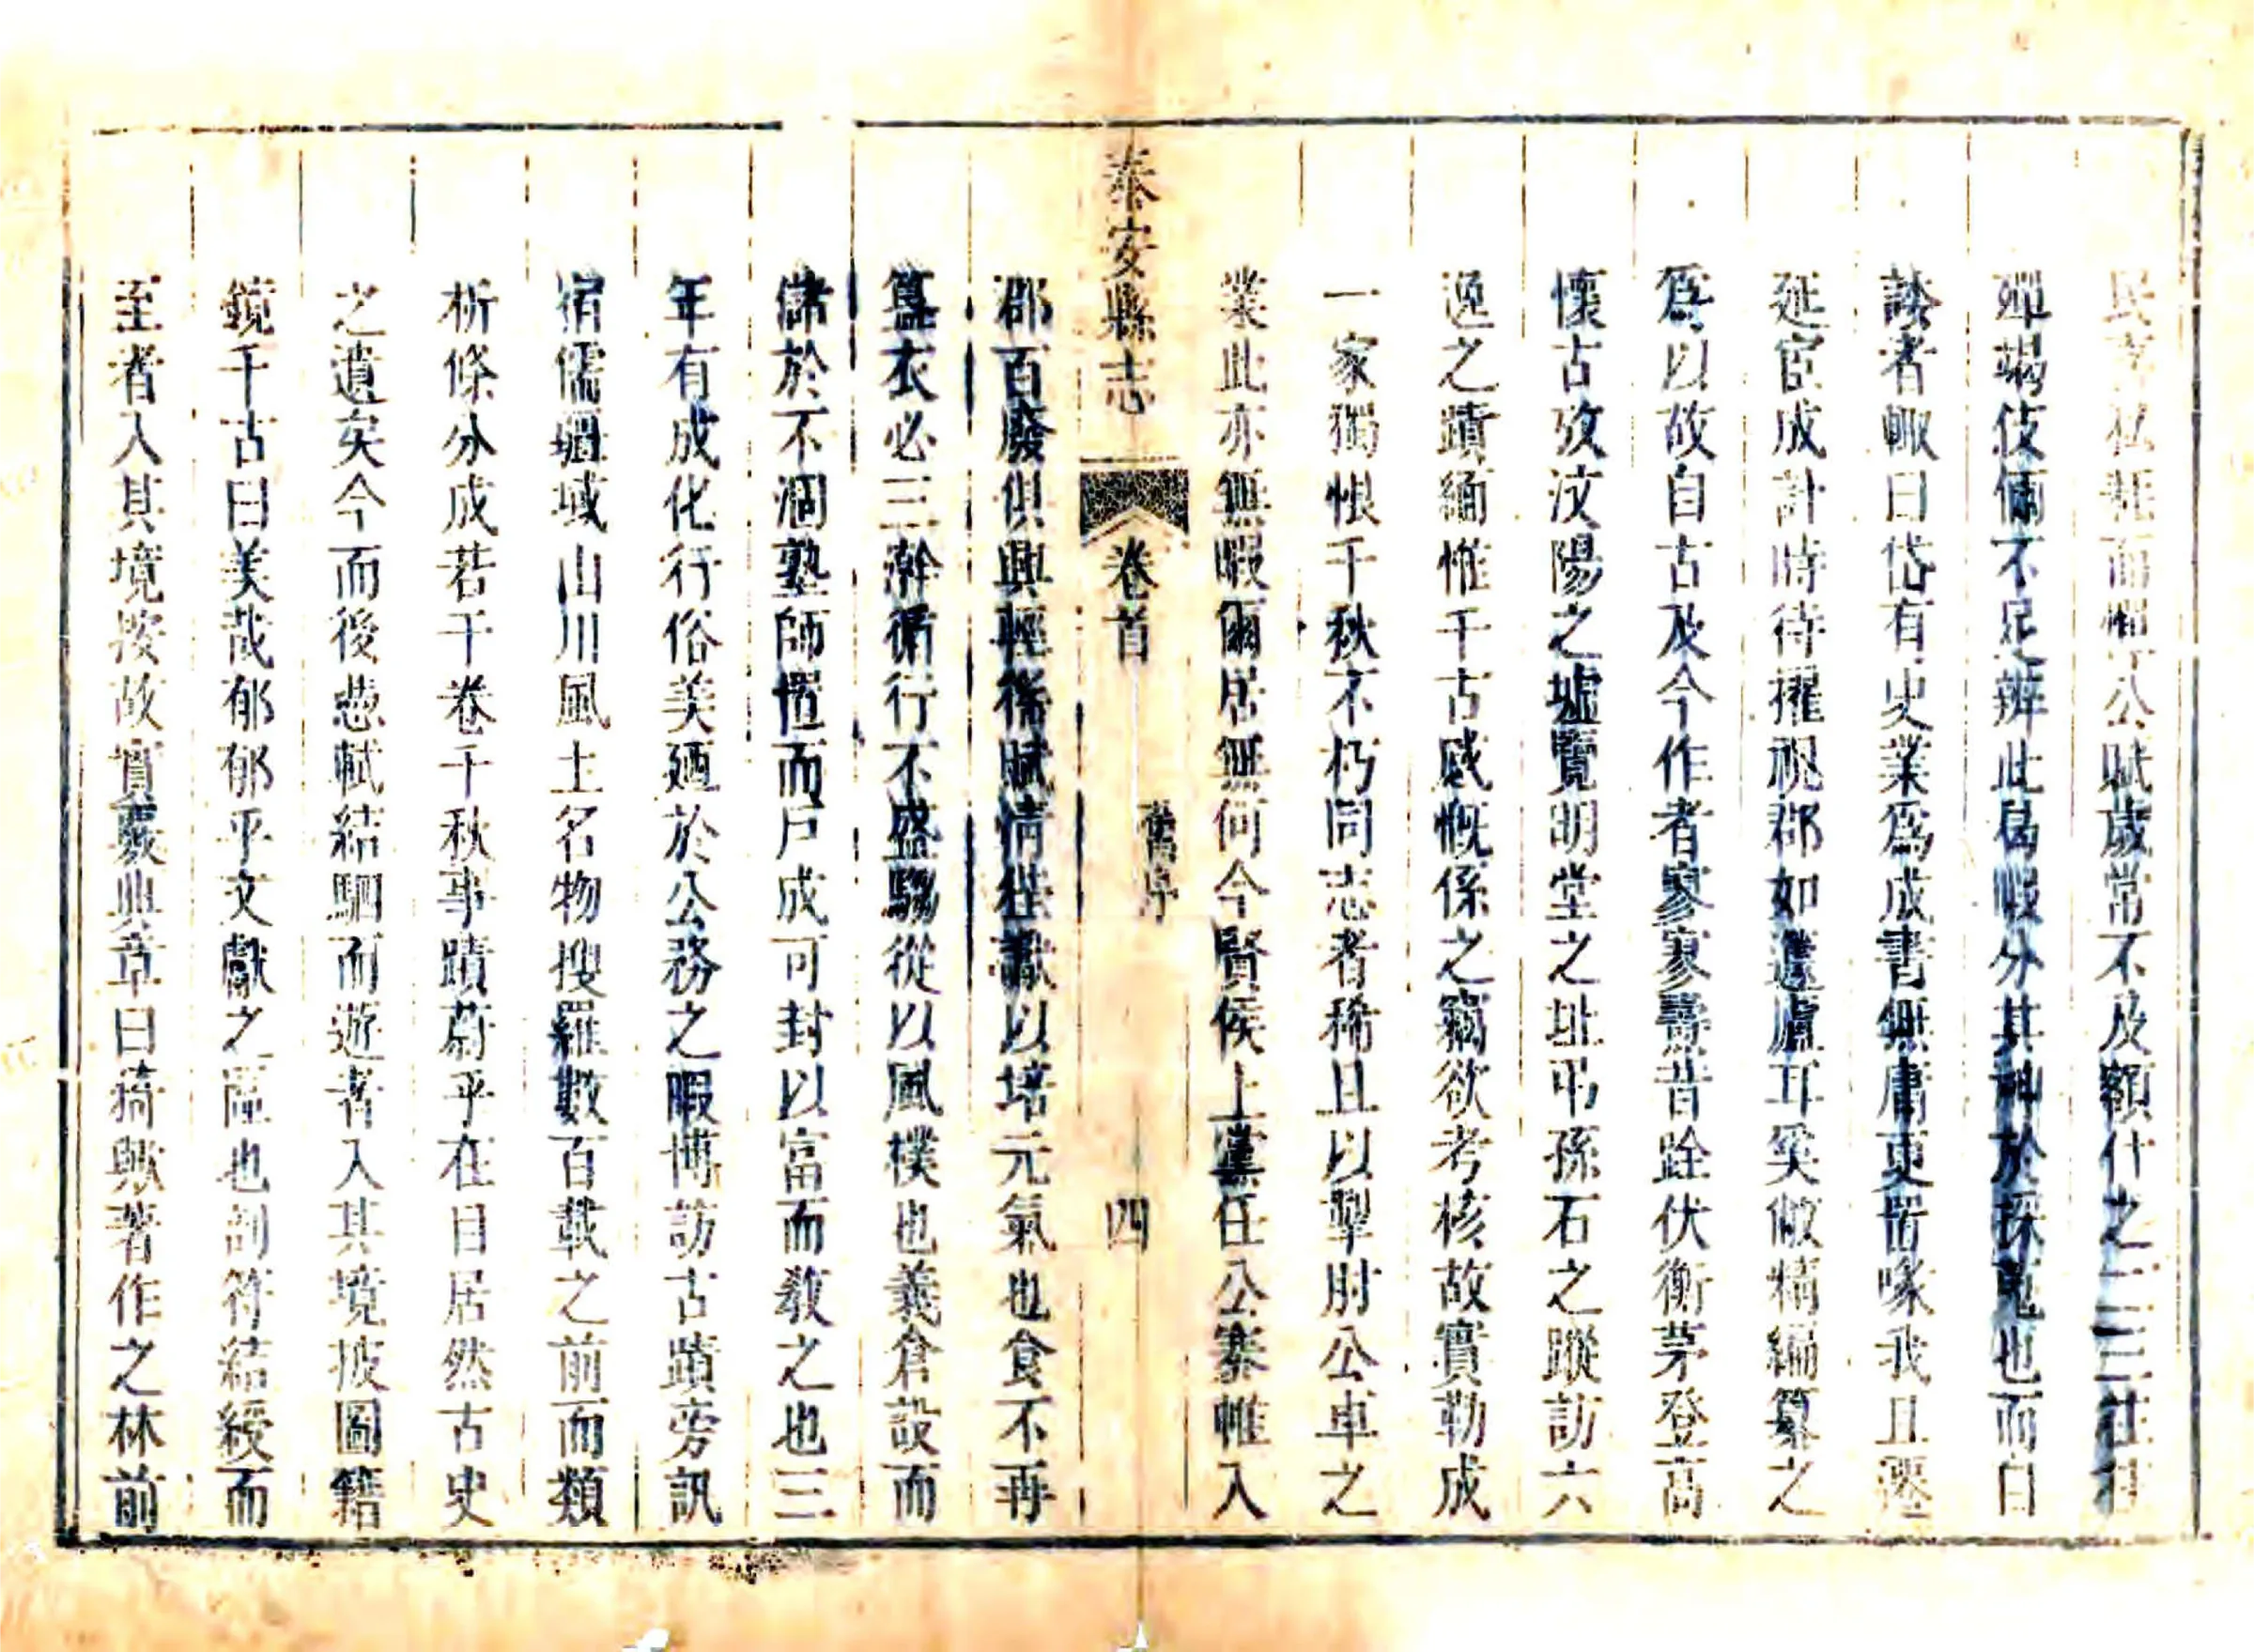 民幸私誑而憎公賦歲常不及額什之二三在科
殫竭伎倆不足辦此曷暇分其神於採蒐也而白
諉者輙曰岱有史業爲成書無庸更喈喙我且遷
延宦成計時待擢視郡如蘧廬耳奚僘精編纂之
爲以故自古及今作者寥寥疇昔跧伏衡茅登高
懷古攷汶陽之墟覽明堂之址弔孫石之蹤訪六
逸之蹟緬惟千古感慨係之竊欲考核故實勒成
一家獨恨千秋不朽同志者稀且以掣肘公車之
業此亦無暇爾居無何今賢侯上黨任公褰帷入
泰安縣志 卷首 舊序 四
郡百廢俱興輕徭賦情徃識以培元氣也食不再
簋衣必三澣循行不盛騶從以風樸也義倉設而
儲於不涸塾師置而戶成可封以富而敎之也三
年有成化行俗美廼於公務之暇博訪古蹟旁訊
宿儒堳域山川風土名物搜羅數百載之前而類
析條分成若干卷千秋事蹟蔚乎在目居然古史
之遺矣今而後憑軾結駟而遊者入其境披圖籍
鏡千古曰美哉郁郁乎文獻之區也剖符結綬而
至者入其境按故實覈典章曰猗歟著作之林前